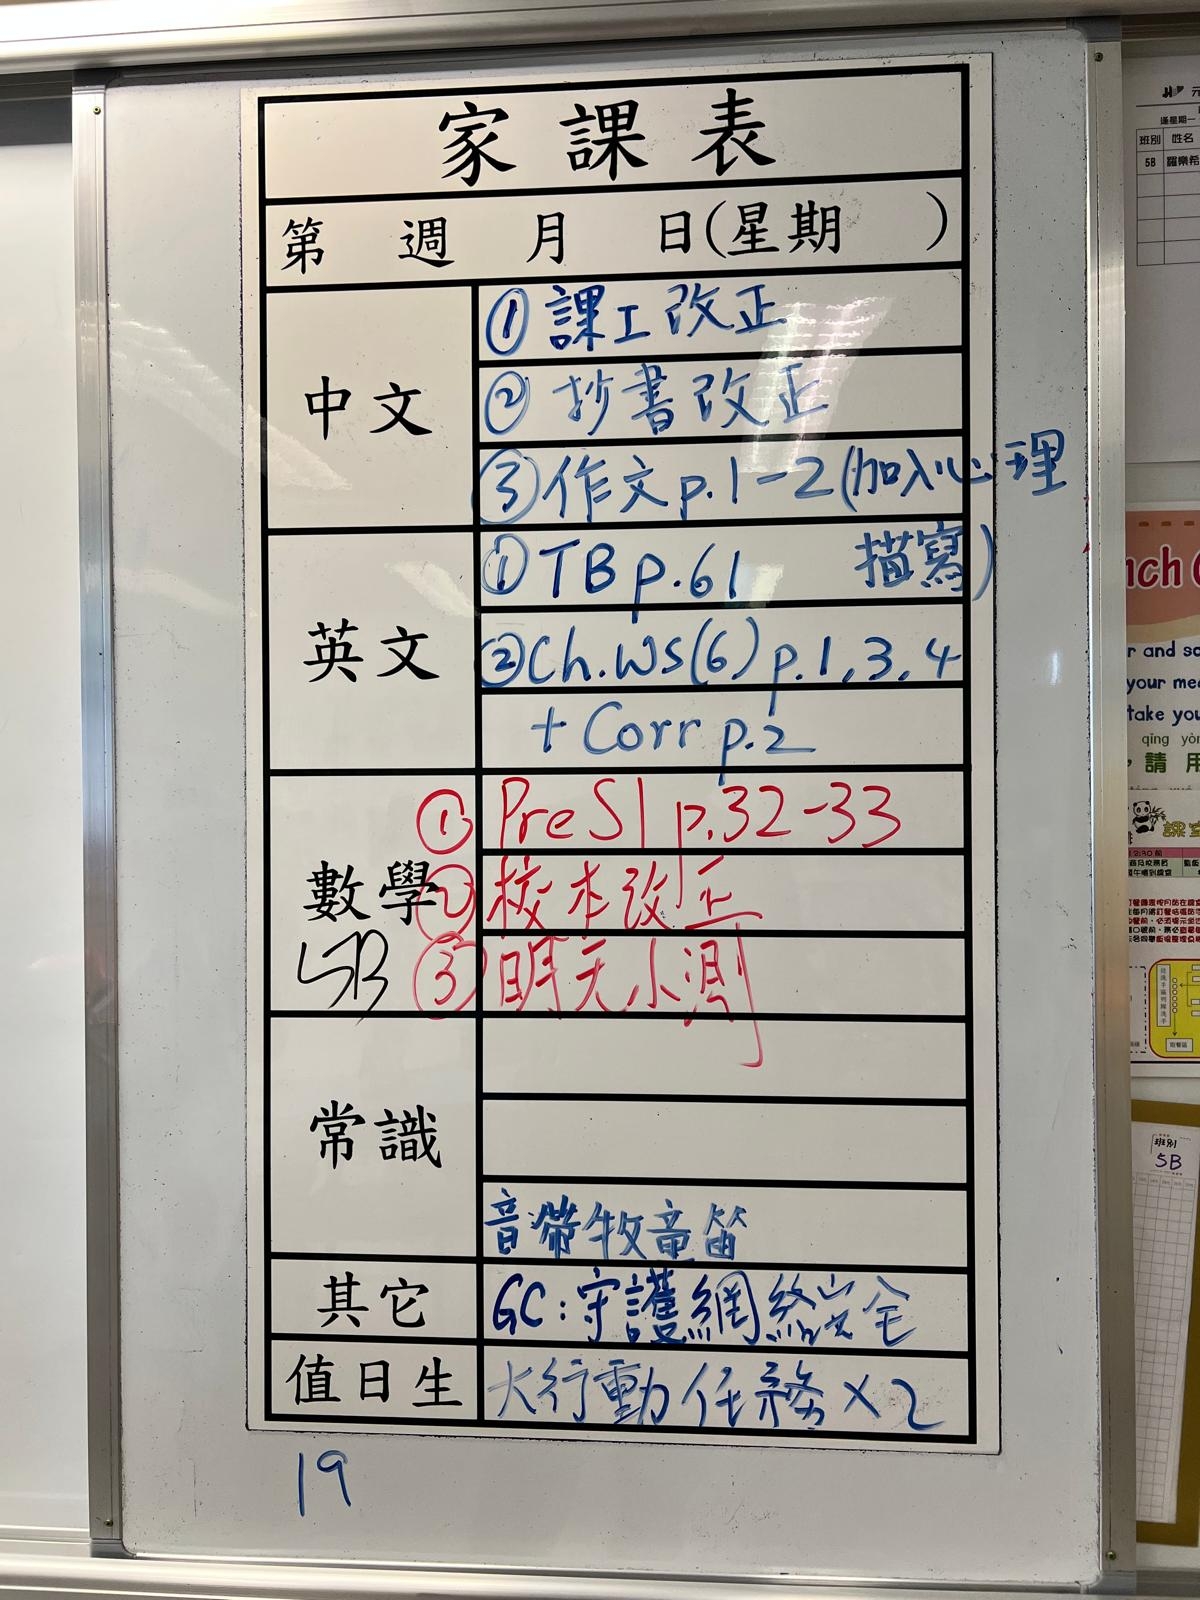 家課表
第 週 月 日(星期 )
中文
① 課工改正
② 抄書改正
③ 作文 p.1-2 (加入心理
描寫)
英文
① TB p.61
② Ch.WS(6) p.1,3,4
+ Corr p.2
數學
5B
① Pre S1 p.32-33
② 校本改正
③ 明天小測
常識
音帶牧童笛
其它
GC:守護網絡安全
值日生
大行動任務×2
19
逢星期一
班別 姓名
5B 羅樂希
nch
r and
your
take you
qīng
請用
班別
5B